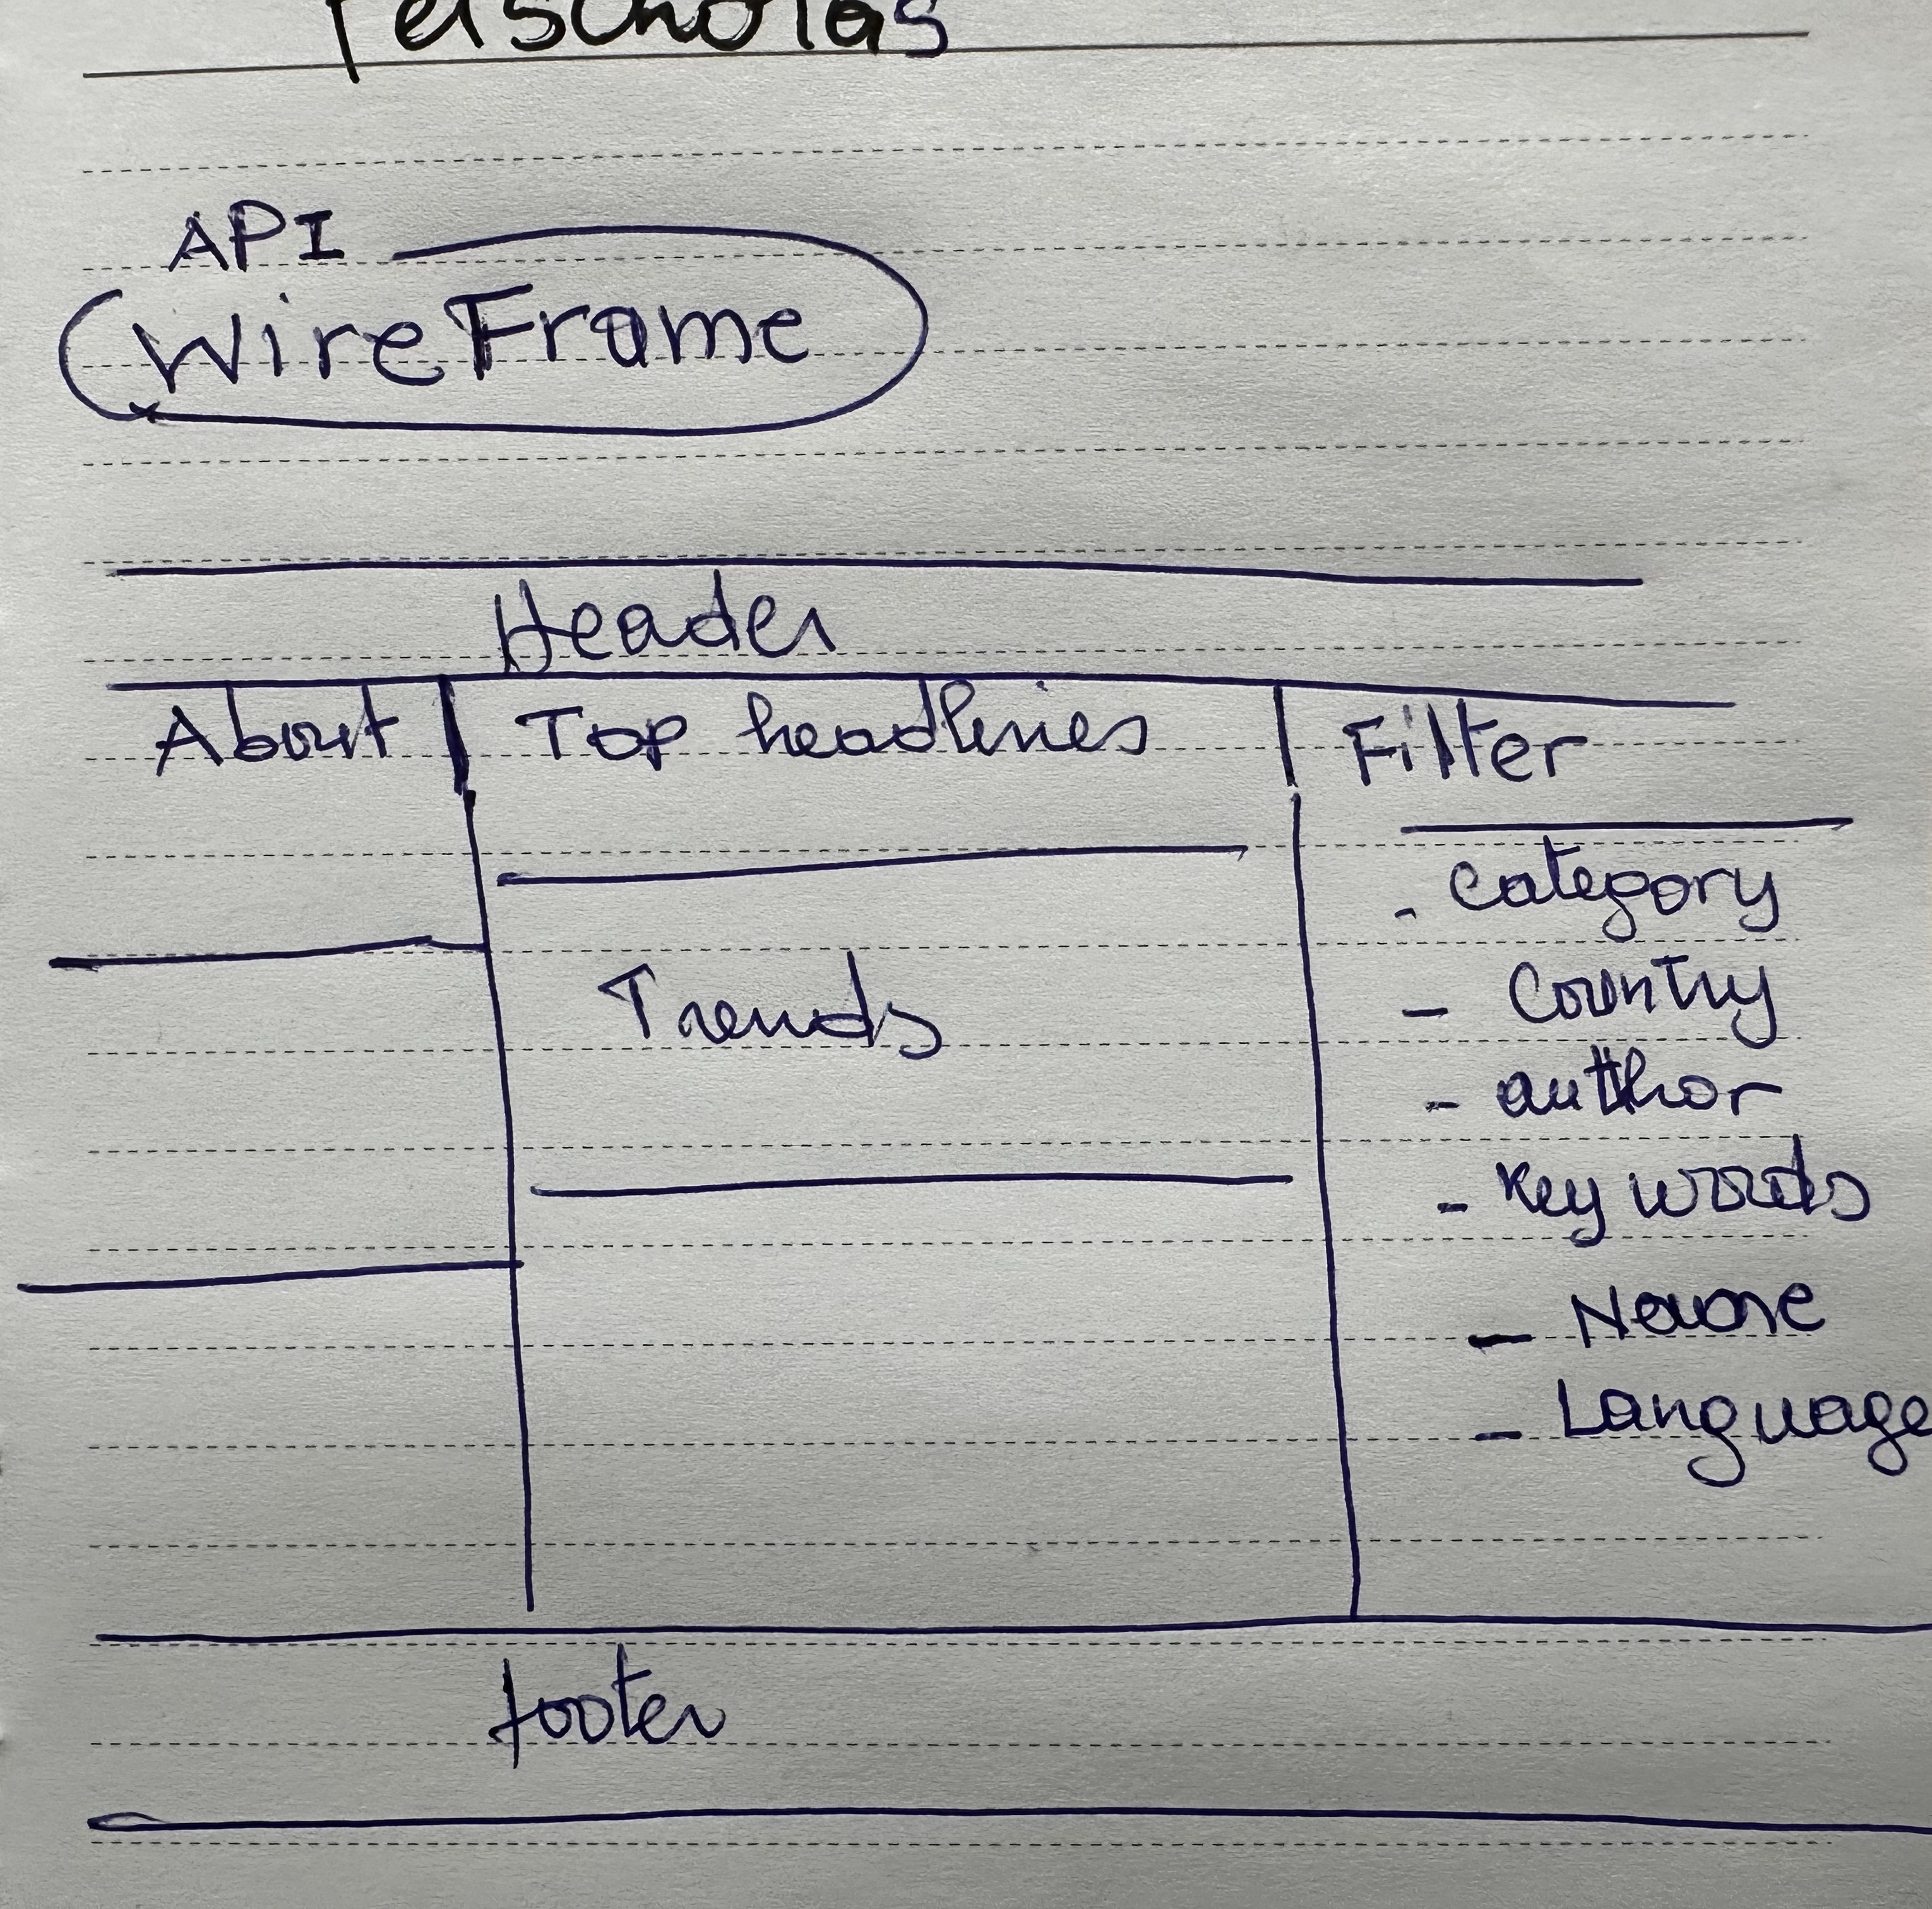 Perscholas
API
WireFrame
Header
About
Top headlines
Filter
Trends
- Category
- Country
- author
- Key words
- Name
- Language
footer